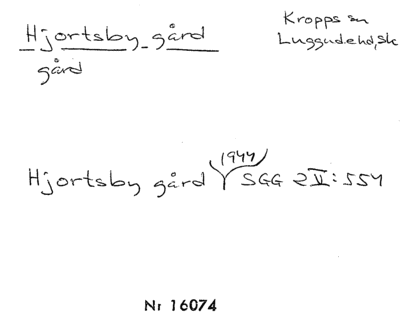 Hjortsby gård
gård
Kropps sn
Luggudehd, Sk
1944
Hjortsby gård Y SGG 2 V: 554
Nr 16074